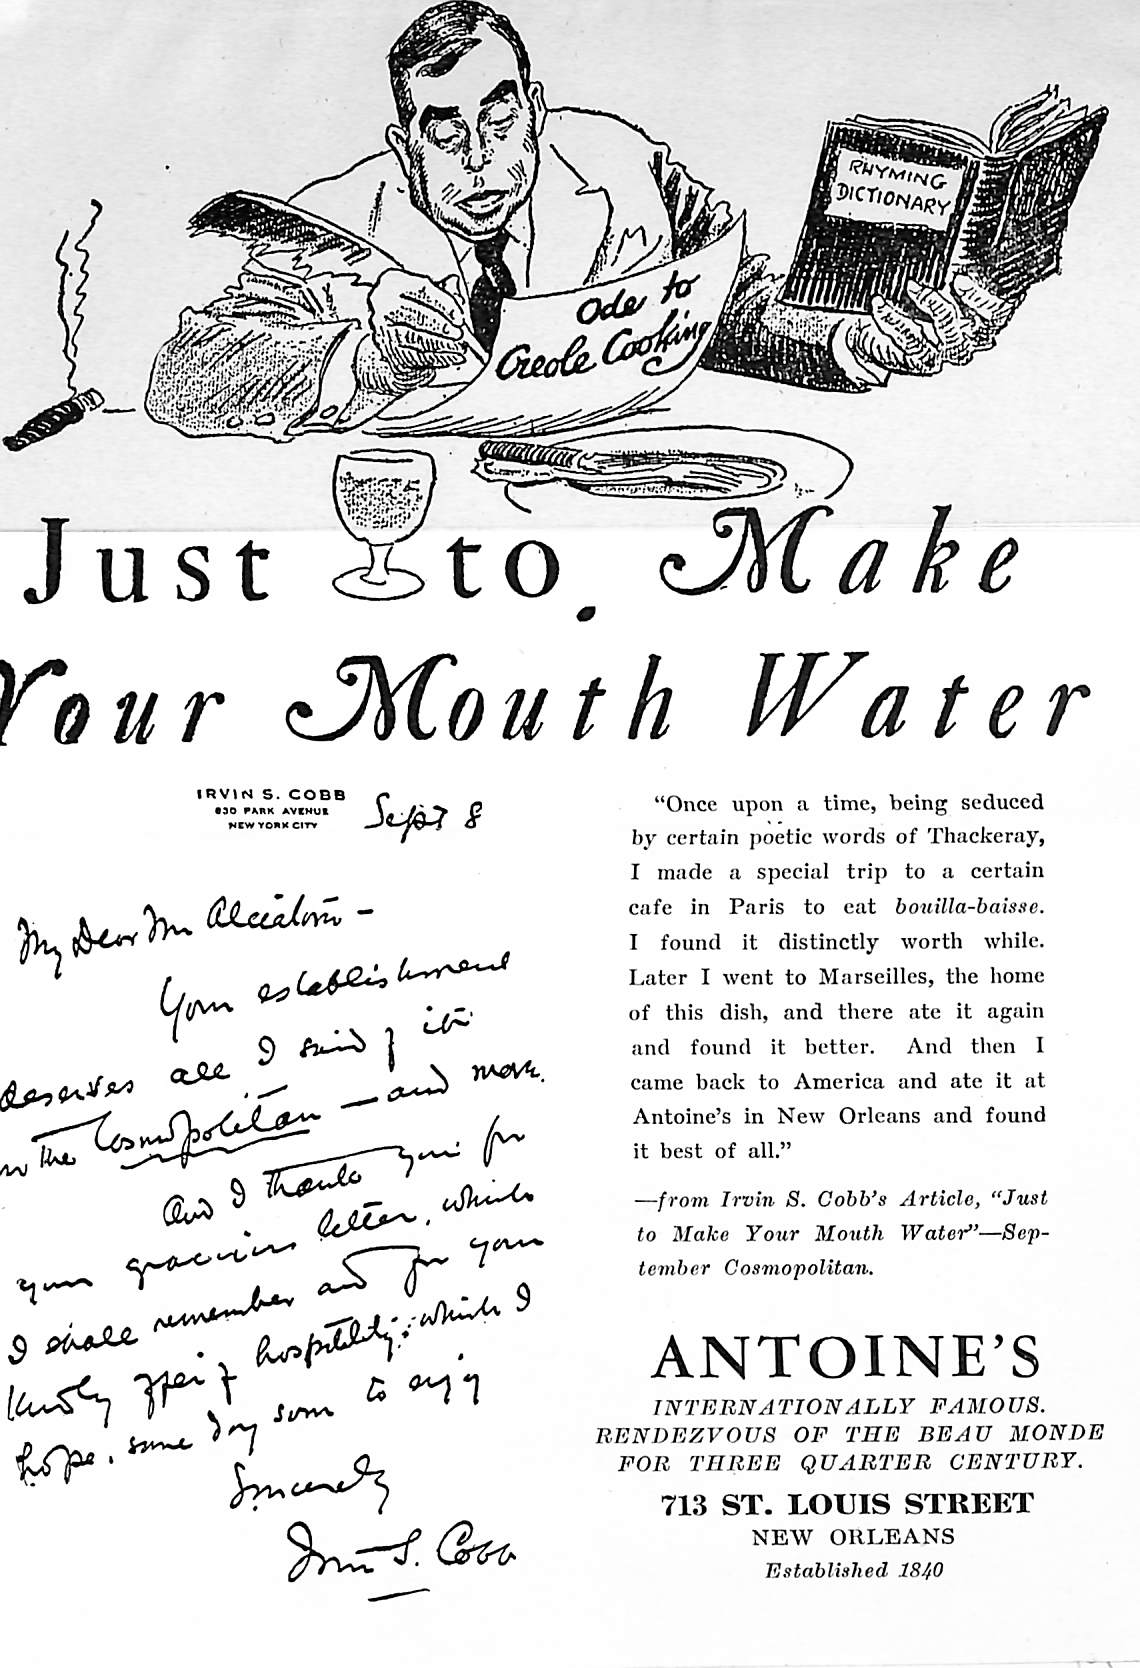 RHYMING
DICTIONARY
Ode to
Creole Cooking
Just to Make
Your Mouth Water
IRVIN S. COBB
830 PARK AVENUE
NEW YORK CITY
Sept 8
My Dear Mr Alciatore —
Your establishment
deserves all I said of it
in the Cosmopolitan — and more.
And I thank you for
your gracious letter, which
I shall remember and for your
kindly offer of hospitality; which I
hope, some day soon to enjoy
Sincerely
Irvin S. Cobb
“Once upon a time, being seduced
by certain poëtic words of Thackeray,
I made a special trip to a certain
cafe in Paris to eat bouilla-baisse.
I found it distinctly worth while.
Later I went to Marseilles, the home
of this dish, and there ate it again
and found it better. And then I
came back to America and ate it at
Antoine’s in New Orleans and found
it best of all.”
—from Irvin S. Cobb’s Article, “Just
to Make Your Mouth Water”—Sep-
tember Cosmopolitan.
ANTOINE’S
INTERNATIONALLY FAMOUS.
RENDEZVOUS OF THE BEAU MONDE
FOR THREE QUARTER CENTURY.
713 ST. LOUIS STREET
NEW ORLEANS
Established 1840